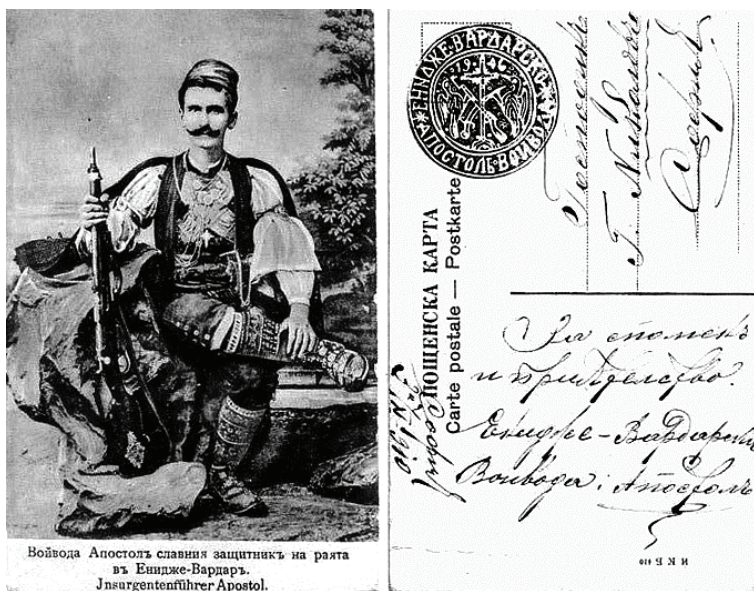 Войвода Апостолъ славния защитникъ на раята
въ Енидже-Вардаръ.
Jnsurgentenführer Apostol.
ЕНИДЖЕ·ВАРДАРСКО
АПОСТОЛЪ·ВОЙВОДА
ПОЩЕНСКА КАРТА
Carte postale — Postkarte
Г. Николовъ
София
За споменъ
и приятелство.
Енидже-Вардарски
Войвода: Апостолъ